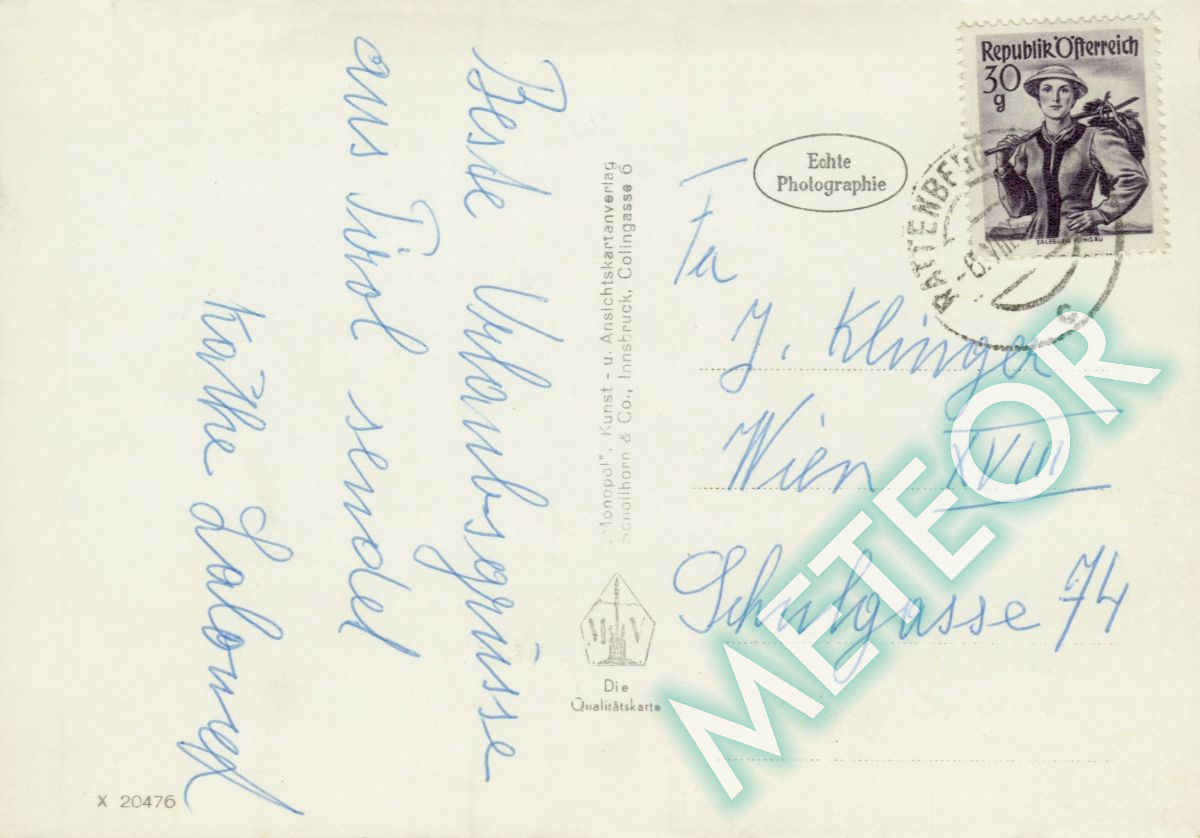 Beste Urlaubsgrüsse
aus Tirol sendet
Käthe
"Monopol", Kunst- u. Ansichtskartanverlag
Schöllhorn & Co., Innsbruck, Colingasse 6
Die
Qualitätskarte
X 20476
Echte
Photographie
Republik Österreich
30
g
SALZBURG PONGAU
RATTENBERG
-6.VIII
c
Fa
J. Klinger
Wien XVIII
Schulgasse 74
METEOR